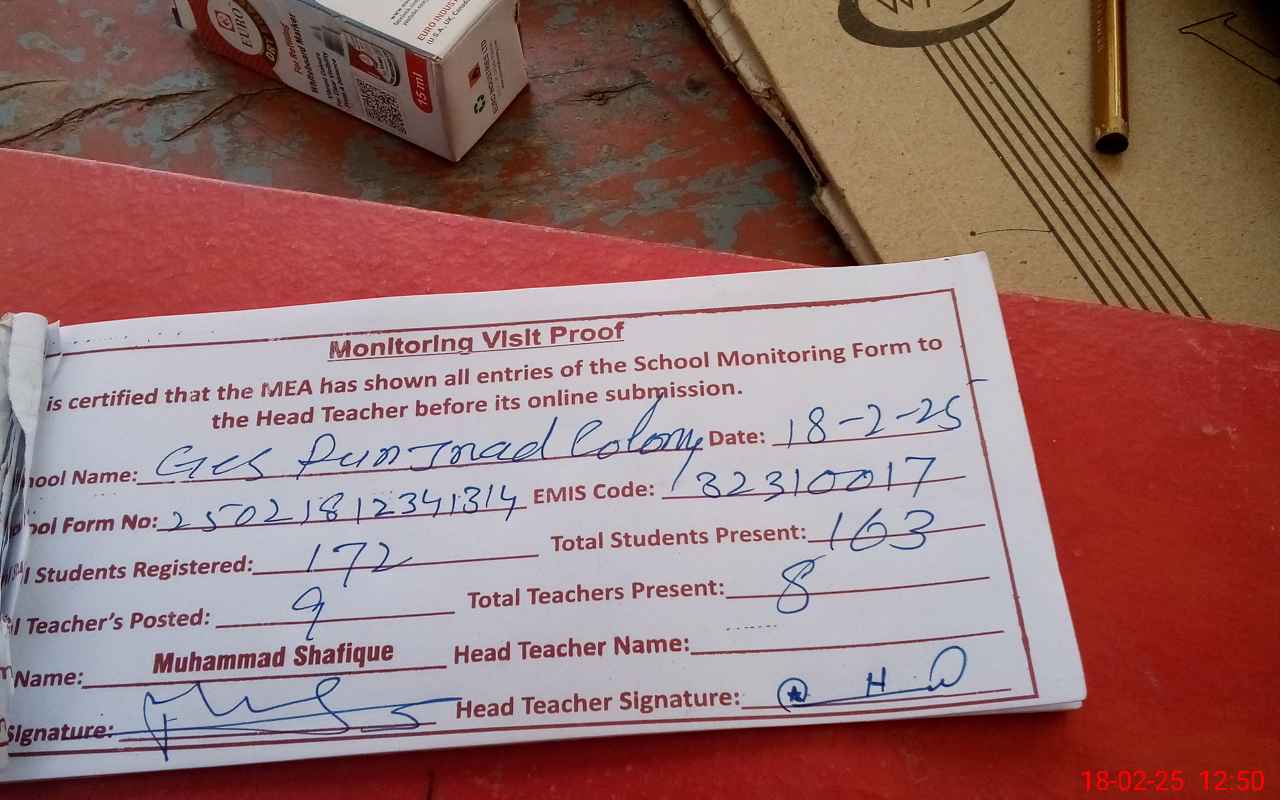 EURO
15 ml
Monitoring Visit Proof
is certified that the MEA has shown all entries of the School Monitoring Form to
the Head Teacher before its online submission.
ool Name: Ges Punjnad Colony Date: 18-2-25
ool Form No: 25021812341314 EMIS Code: 32310017
l Students Registered: 172 Total Students Present: 163
l Teacher's Posted: 9 Total Teachers Present: 8
Name: Muhammad Shafique Head Teacher Name:
Signature: Head Teacher Signature:
18-02-25 12:50